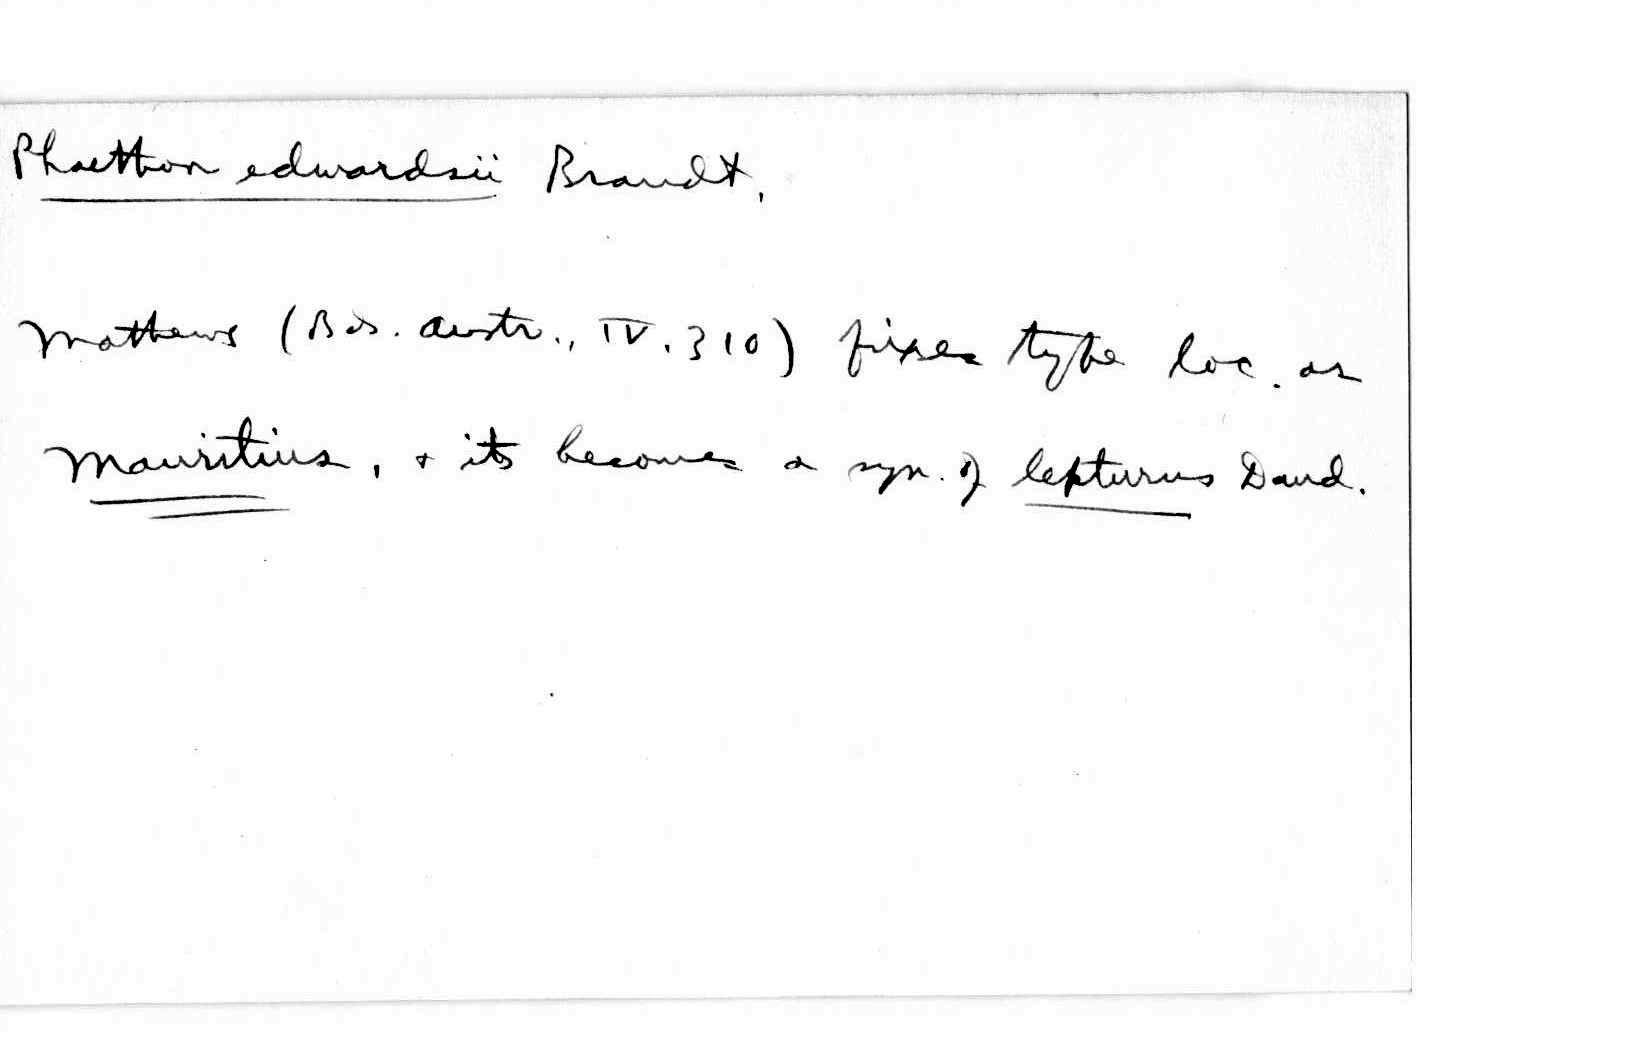 Phaethon edwardsii Brandt,
Mathews (Bds. Austr., IV. 310) fixes type loc. as
Mauritius, & its becomes a syn. of lepturus Daud.